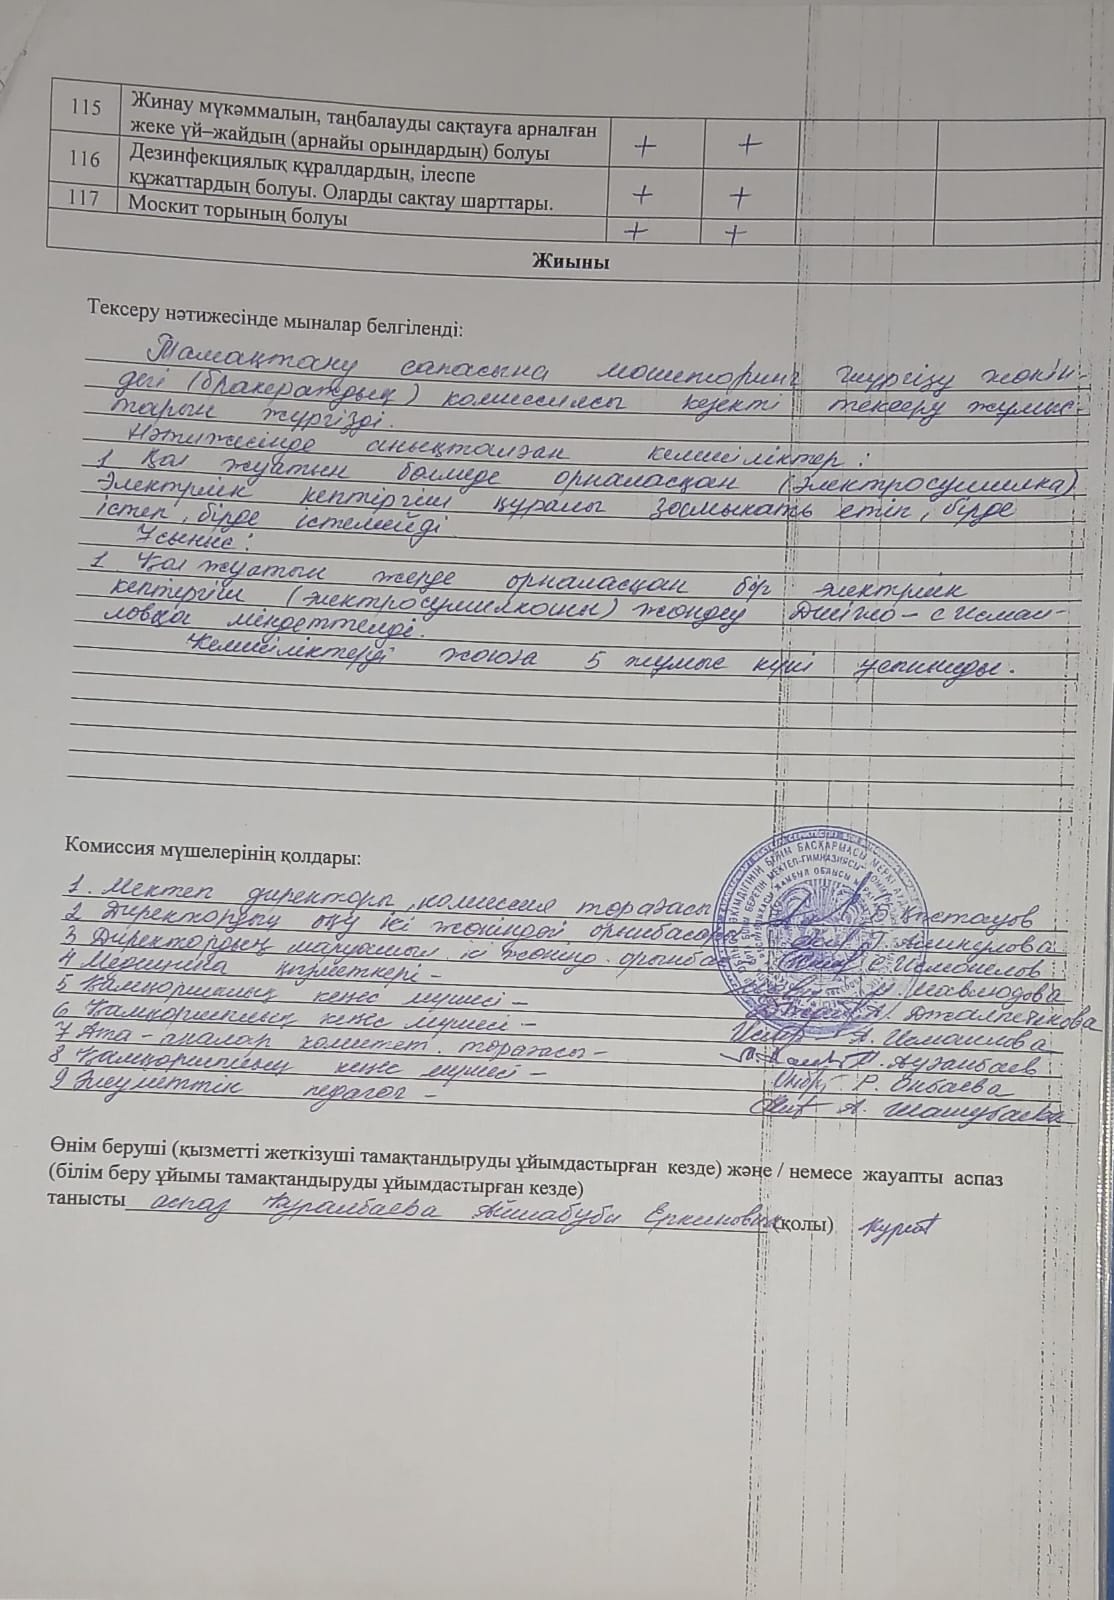 115 Жинау мүкәммалын, таңбалауды сақтауға арналған
жеке үй–жайдың (арнайы орындардың) болуы + +
116 Дезинфекциялық құралдардың, ілеспе
құжаттардың болуы. Оларды сақтау шарттары. + +
117 Москит торының болуы + +
Жиыны
Тексеру нәтижесінде мыналар белгіленді:
Тамақтану сапасына мониторинг жүргізу жөнін-
дегі (бракераждық) комиссиясы кезекті тексеру жұмыс-
тарын жүргізді.
Нәтижесінде анықталған кемшіліктер:
1 Қол жуатын бөлмеде орналасқан (электросушилка)
Электрлік кептіргіш құралы замыкать етіп, бірде
істеп, бірде істемейді
Ұсыныс:
1. Қол жуатын жерде орналасқан бір электрлік
кептіргіш (электросушилканы) жөндеу С Исмаи-
ловқа міндеттелді.
Кемшіліктерді жоюға 5 жұмыс күні ұсынылды.
Комиссия мүшелерінің қолдары:
1. Мектеп директоры, комиссия төрағасы
2 Директордың оқу ісі жөніндегі орынбасары Г. Ашкенова
3 Директордың ісі жөнінд. орынбас С Исмаилов
4 Медицина қызметкері – Мавлюдова
5 Қамқоршылық кеңес мүшесі –
6 Қамқоршылық кеңес мүшесі – А. Исмаилова
7 Ата-аналар комитет төрағасы – Аузанбаев
8 Қамқоршылық кеңес мүшесі – Р. Онбаева
9 Әлеуметтік педагог – А. Шашубаева
Өнім беруші (қызметті жеткізуші тамақтандыруды ұйымдастырған кезде) және / немесе жауапты аспаз
(білім беру ұйымы тамақтандыруды ұйымдастырған кезде)
танысты аспаз Еркиновна (қолы)